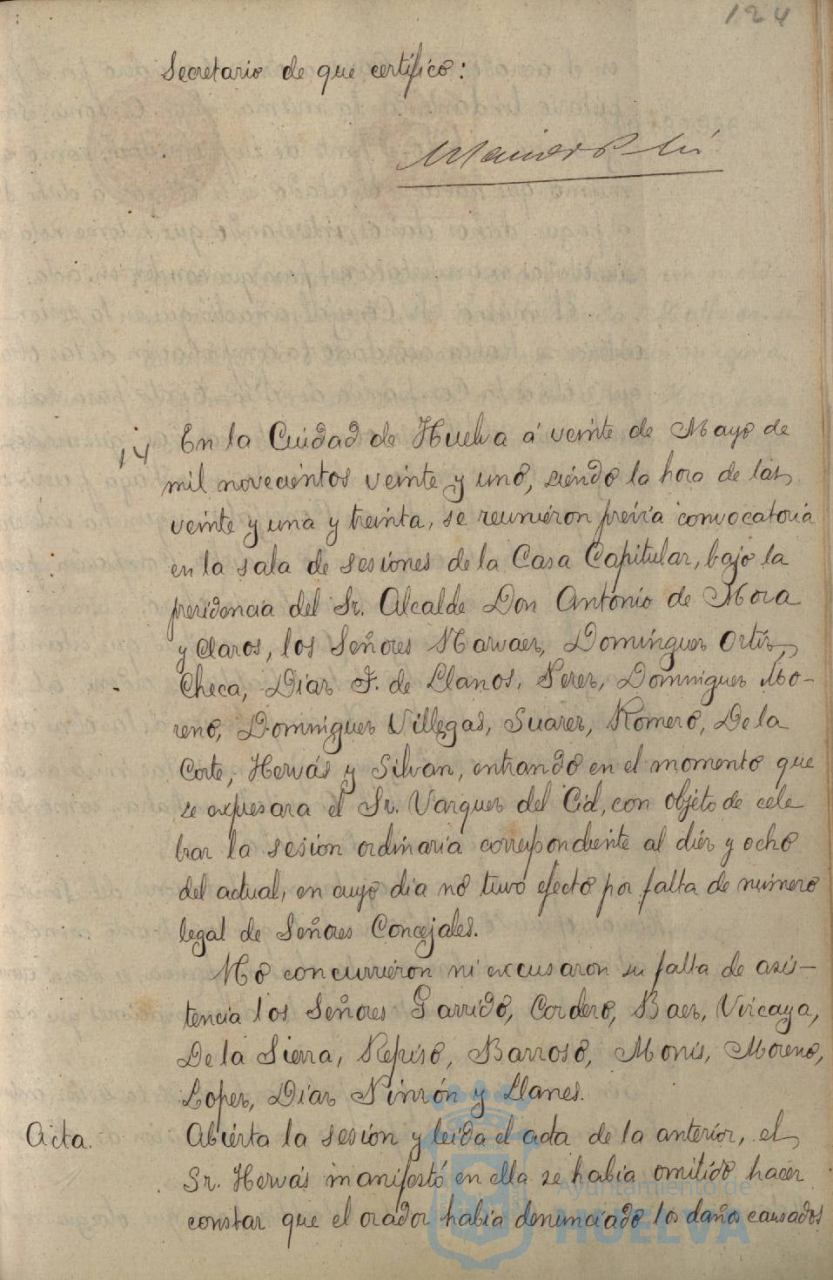 124
Secretario de que certifico:
14 En la Cuidad de Huelva á veinte de Mayo de
mil novecientos veinte y uno, siendo la hora de las
veinte y una y treinta, se reunieron previa convocatoria
en la sala de sesiones de la Casa Capitular, bajo la
presidencia del Sr. Alcalde Don Antonio de Mora
y Claros, los Señores Narvaez, Dominguez Ortiz,
Checa, Diaz F. de Llanos, Perez, Dominguez Mo-
reno, Dominguez Villegas, Suarez, Romero, De la
Corte, Hervás y Silvan, entrando en el momento que
se expresara el Sr. Vazquez del Cid, con objeto de cele
brar la sesion ordinaria correspondiente al diez y ocho
del actual, en cuyo dia no tuvo efecto por falta de número
legal de Señores Concejales.
No concurrieron ni excusaron su falta de asis-
tencia los Señores Garrido, Cordero, Baez, Vizcaya,
De la Sierra, Repiso, Barroso, Monis, Moreno,
Lopez, Diaz Pinzón y Llanes.
Acta. Abierta la sesión y leida el acta de la anterior, el
Sr. Hervás manifestó en ella se habia omitido hacer
constar que el orador habia denunciado los daños causados
Ayuntamiento de
HUELVA